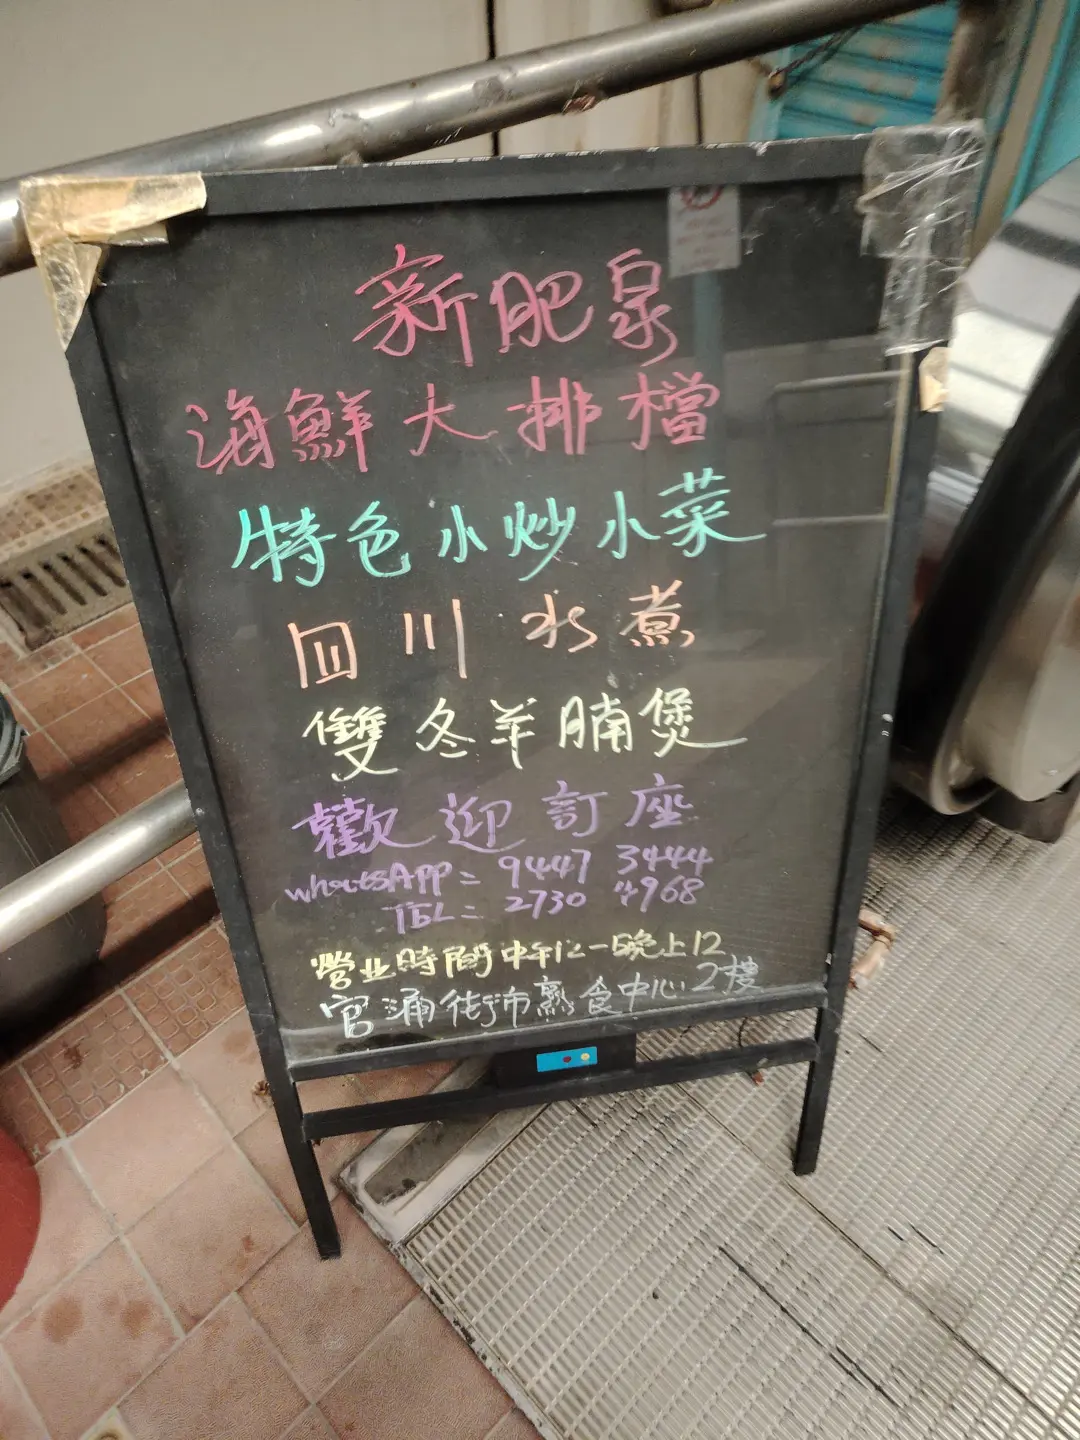 新肥泉
海鮮大排檔
特色小炒小菜
四川水煮
雙冬羊腩煲
歡迎訂座
whatsApp= 9447 3444
TEL= 2730 4968
營业時間中午12-5晚上12
官涌街市熟食中心2樓